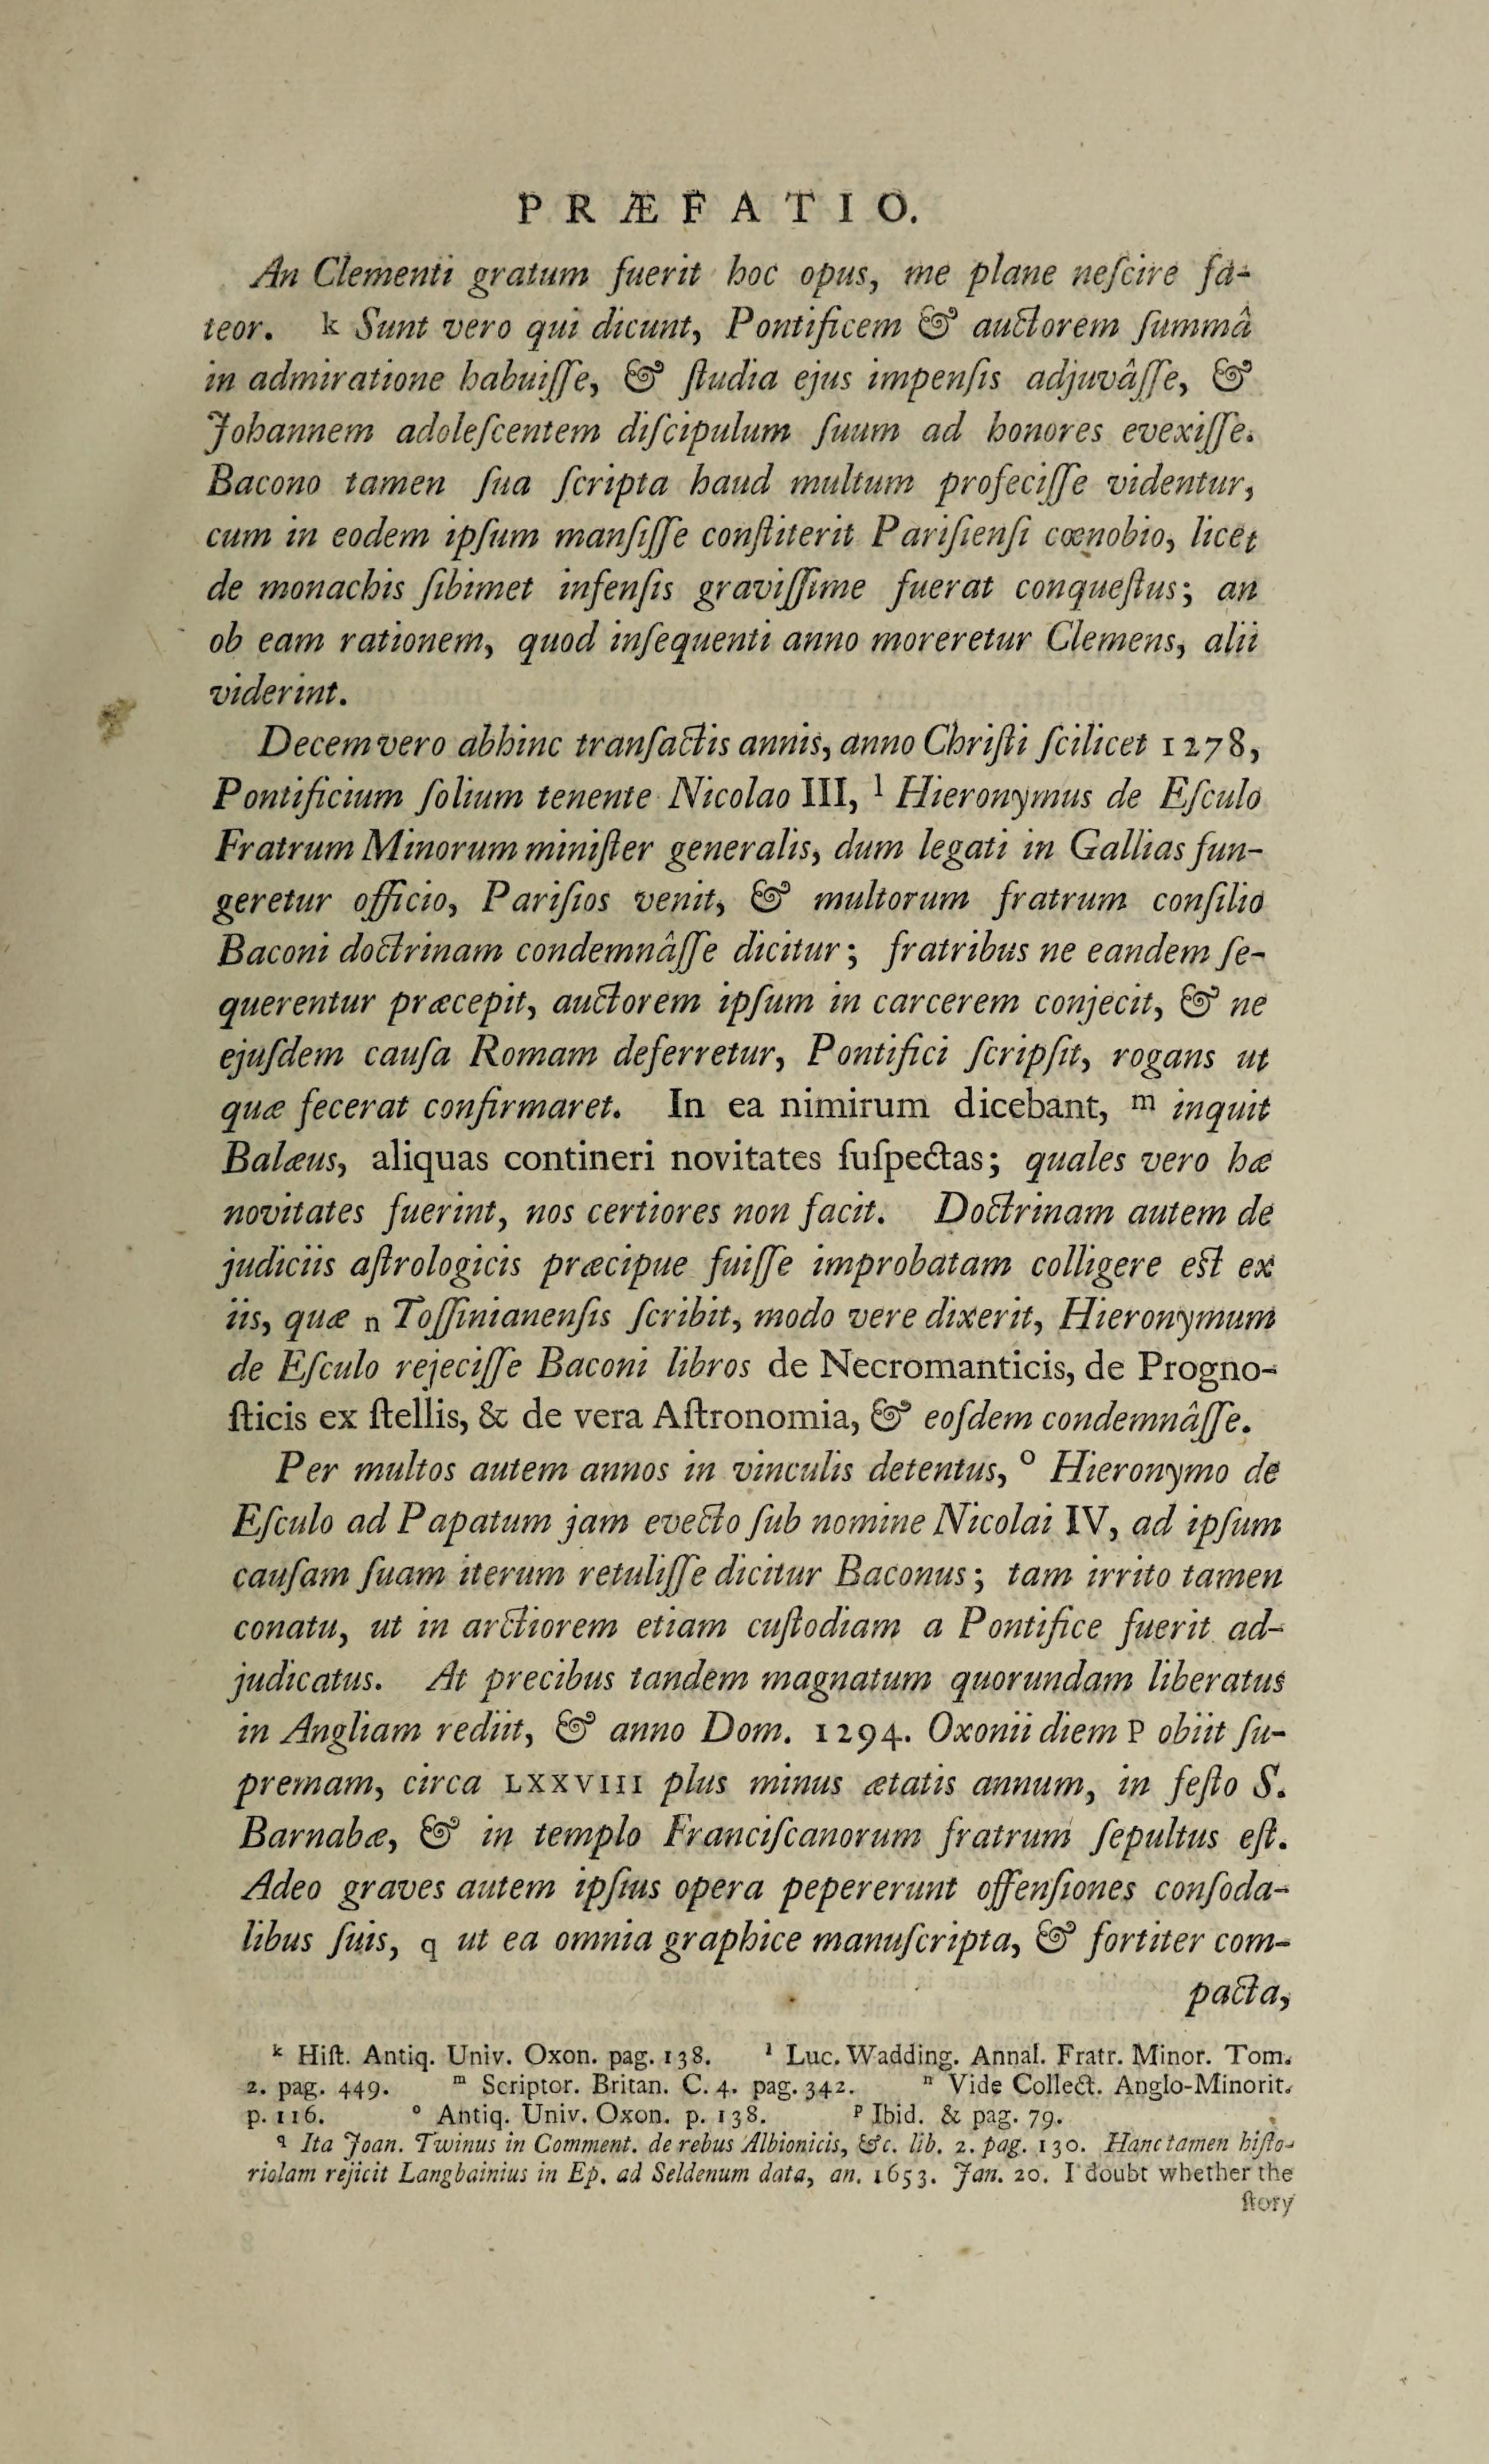 PRÆFATIO.
An Clementi gratum fuerit hoc opus, me plane neſcire fa-
teor. k Sunt vero qui dicunt, Pontificem & auctorem ſummâ
in admiratione habuiſſe, & ſtudia ejus impenſis adjuvâſſe, &
Johannem adoleſcentem diſcipulum ſuum ad honores evexiſſe.
Bacono tamen ſua ſcripta haud multum profeciſſe videntur,
cum in eodem ipſum manſiſſe conſtiterit Pariſienſi cœnobio, licet
de monachis ſibimet infenſis graviſſime fuerat conqueſtus; an
ob eam rationem, quod inſequenti anno moreretur Clemens, alii
viderint.
Decem vero abhinc tranſactis annis, anno Chriſti ſcilicet 1278,
Pontificium ſolium tenente Nicolao III, l Hieronymus de Eſculo
Fratrum Minorum miniſter generalis, dum legati in Gallias fun-
geretur officio, Pariſios venit, & multorum fratrum conſilio
Baconi doctrinam condemnâſſe dicitur; fratribus ne eandem ſe-
querentur præcepit, auctorem ipſum in carcerem conjecit, & ne
ejuſdem cauſa Romam deferretur, Pontifici ſcripſit, rogans ut
quæ fecerat confirmaret. In ea nimirum dicebant, m inquit
Balæus, aliquas contineri novitates ſuſpectas; quales vero hæ
novitates fuerint, nos certiores non facit. Doctrinam autem de
judiciis aſtrologicis præcipue fuiſſe improbatam colligere eſt ex
iis, quæ n Toſſinianenſis ſcribit, modo vere dixerit, Hieronymum
de Eſculo rejeciſſe Baconi libros de Necromanticis, de Progno-
ſticis ex ſtellis, & de vera Aſtronomia, & eoſdem condemnâſſe.
Per multos autem annos in vinculis detentus, o Hieronymo de
Eſculo ad Papatum jam evecto ſub nomine Nicolai IV, ad ipſum
cauſam ſuam iterum retuliſſe dicitur Baconus; tam irrito tamen
conatu, ut in arctiorem etiam cuſtodiam a Pontifice fuerit ad-
judicatus. At precibus tandem magnatum quorundam liberatus
in Angliam rediit, & anno Dom. 1294. Oxonii diem p obiit ſu-
premam, circa LXXVIII plus minus ætatis annum, in feſto S.
Barnabæ, & in templo Franciſcanorum fratrum ſepultus eſt.
Adeo graves autem ipſius opera pepererunt offenſiones conſoda-
libus ſuis, q ut ea omnia graphice manuſcripta, & fortiter com-
pacta,
k Hiſt. Antiq. Univ. Oxon. pag. 138. l Luc. Wadding. Annal. Fratr. Minor. Tom.
2. pag. 449. m Scriptor. Britan. C. 4. pag. 342. n Vide Collect. Anglo-Minorit.
p. 116. o Antiq. Univ. Oxon. p. 138. p Ibid. & pag. 79.
q Ita Joan. Twinus in Comment. de rebus Albionicis, &c. lib. 2. pag. 130. Hanc tamen hiſto-
riolam rejicit Langbainius in Ep. ad Seldenum data, an. 1653. Jan. 20. I doubt whether the
ſtory